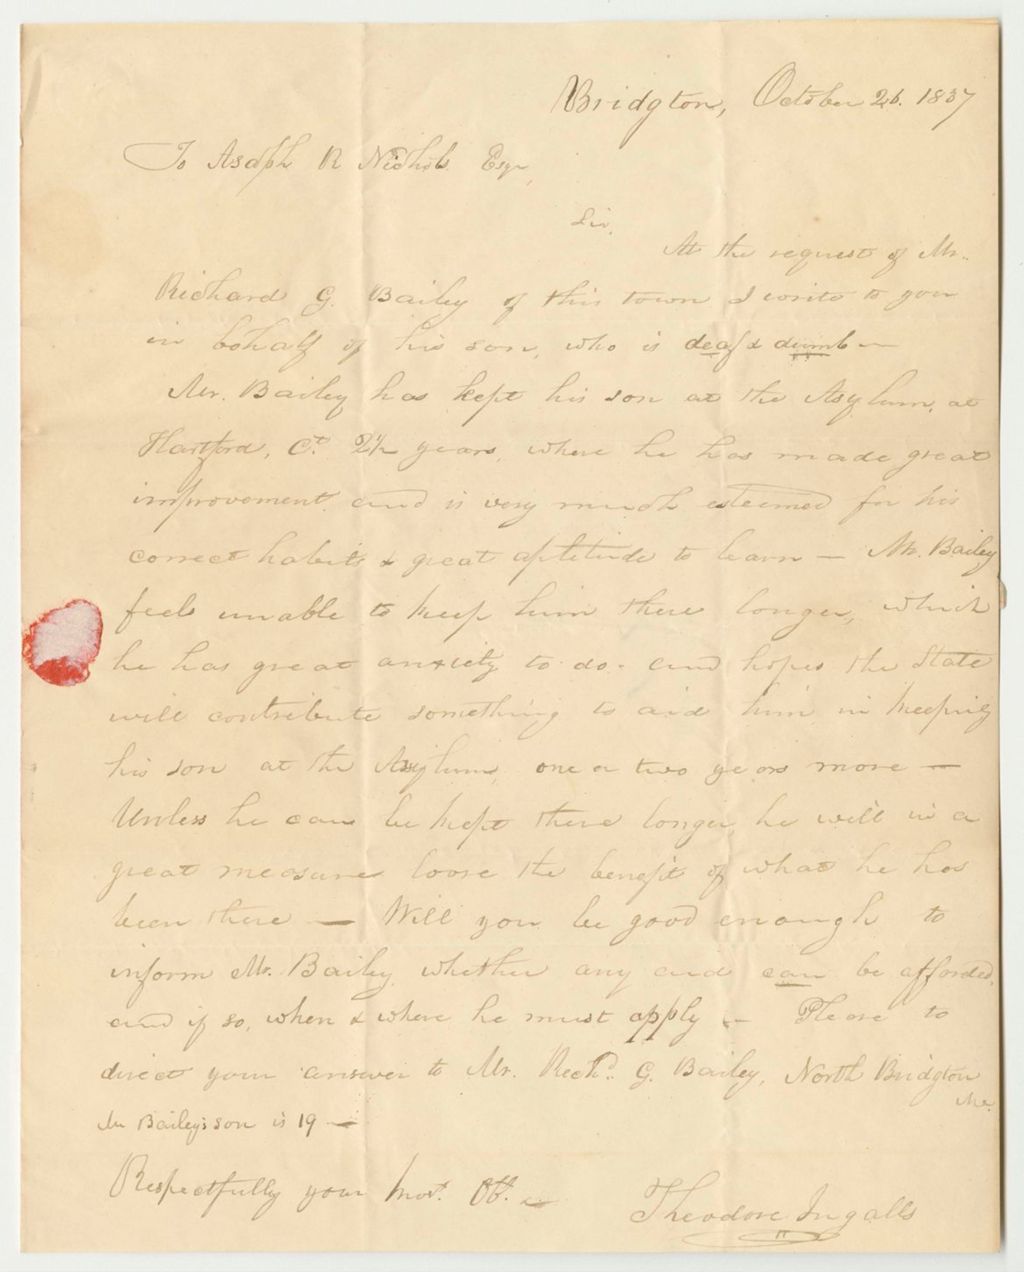 Bridgton, October 26. 1837
To Asaph R Nichols Esqr,
Sir,
At the request of Mr.
Richard G. Bailey of this town I write to you
in behalf of his son, who is deaf & dumb —
Mr. Bailey has kept his son at the Asylum, at
Hartford, Ct. 2½ years, where he has made great
improvement and is very much esteemed for his
correct habits & great aptitude to learn — Mr. Bailey
feels unable to keep him there longer, which
he has great anxiety to do. and hopes the State
will contribute something to aid him in keeping
his son at the Asylum one or two years more —
Unless he can be kept there longer, he will in a
great measure loose the benefit of what he has
been there — Will you be good enough to
inform Mr. Bailey whether any aid can be afforded,
and if so, when & where he must apply. — Please to
direct your answer to Mr. Richd. G. Bailey, North Bridgton
Me.
Mr Bailey's son is 19 —
Respectfully your most. Ob.
Theodore Ingalls